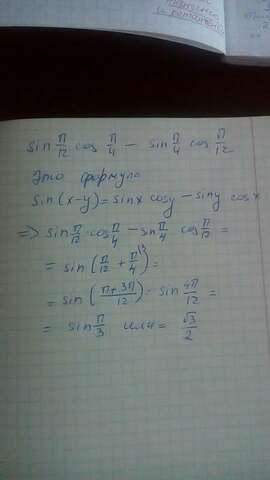 sin π/12 cos π/4 - sin π/4 cos π/12
Это формула
sin(x-y)=sinx cosy - siny cosx
=> sin π/12 · cos π/4 - sin π/4 cos π/12 =
= sin (π/12 + π/4 \3) =
= sin ((π+3π)/12) - sin 4π/12 =
= sin π/3 или = √3/2